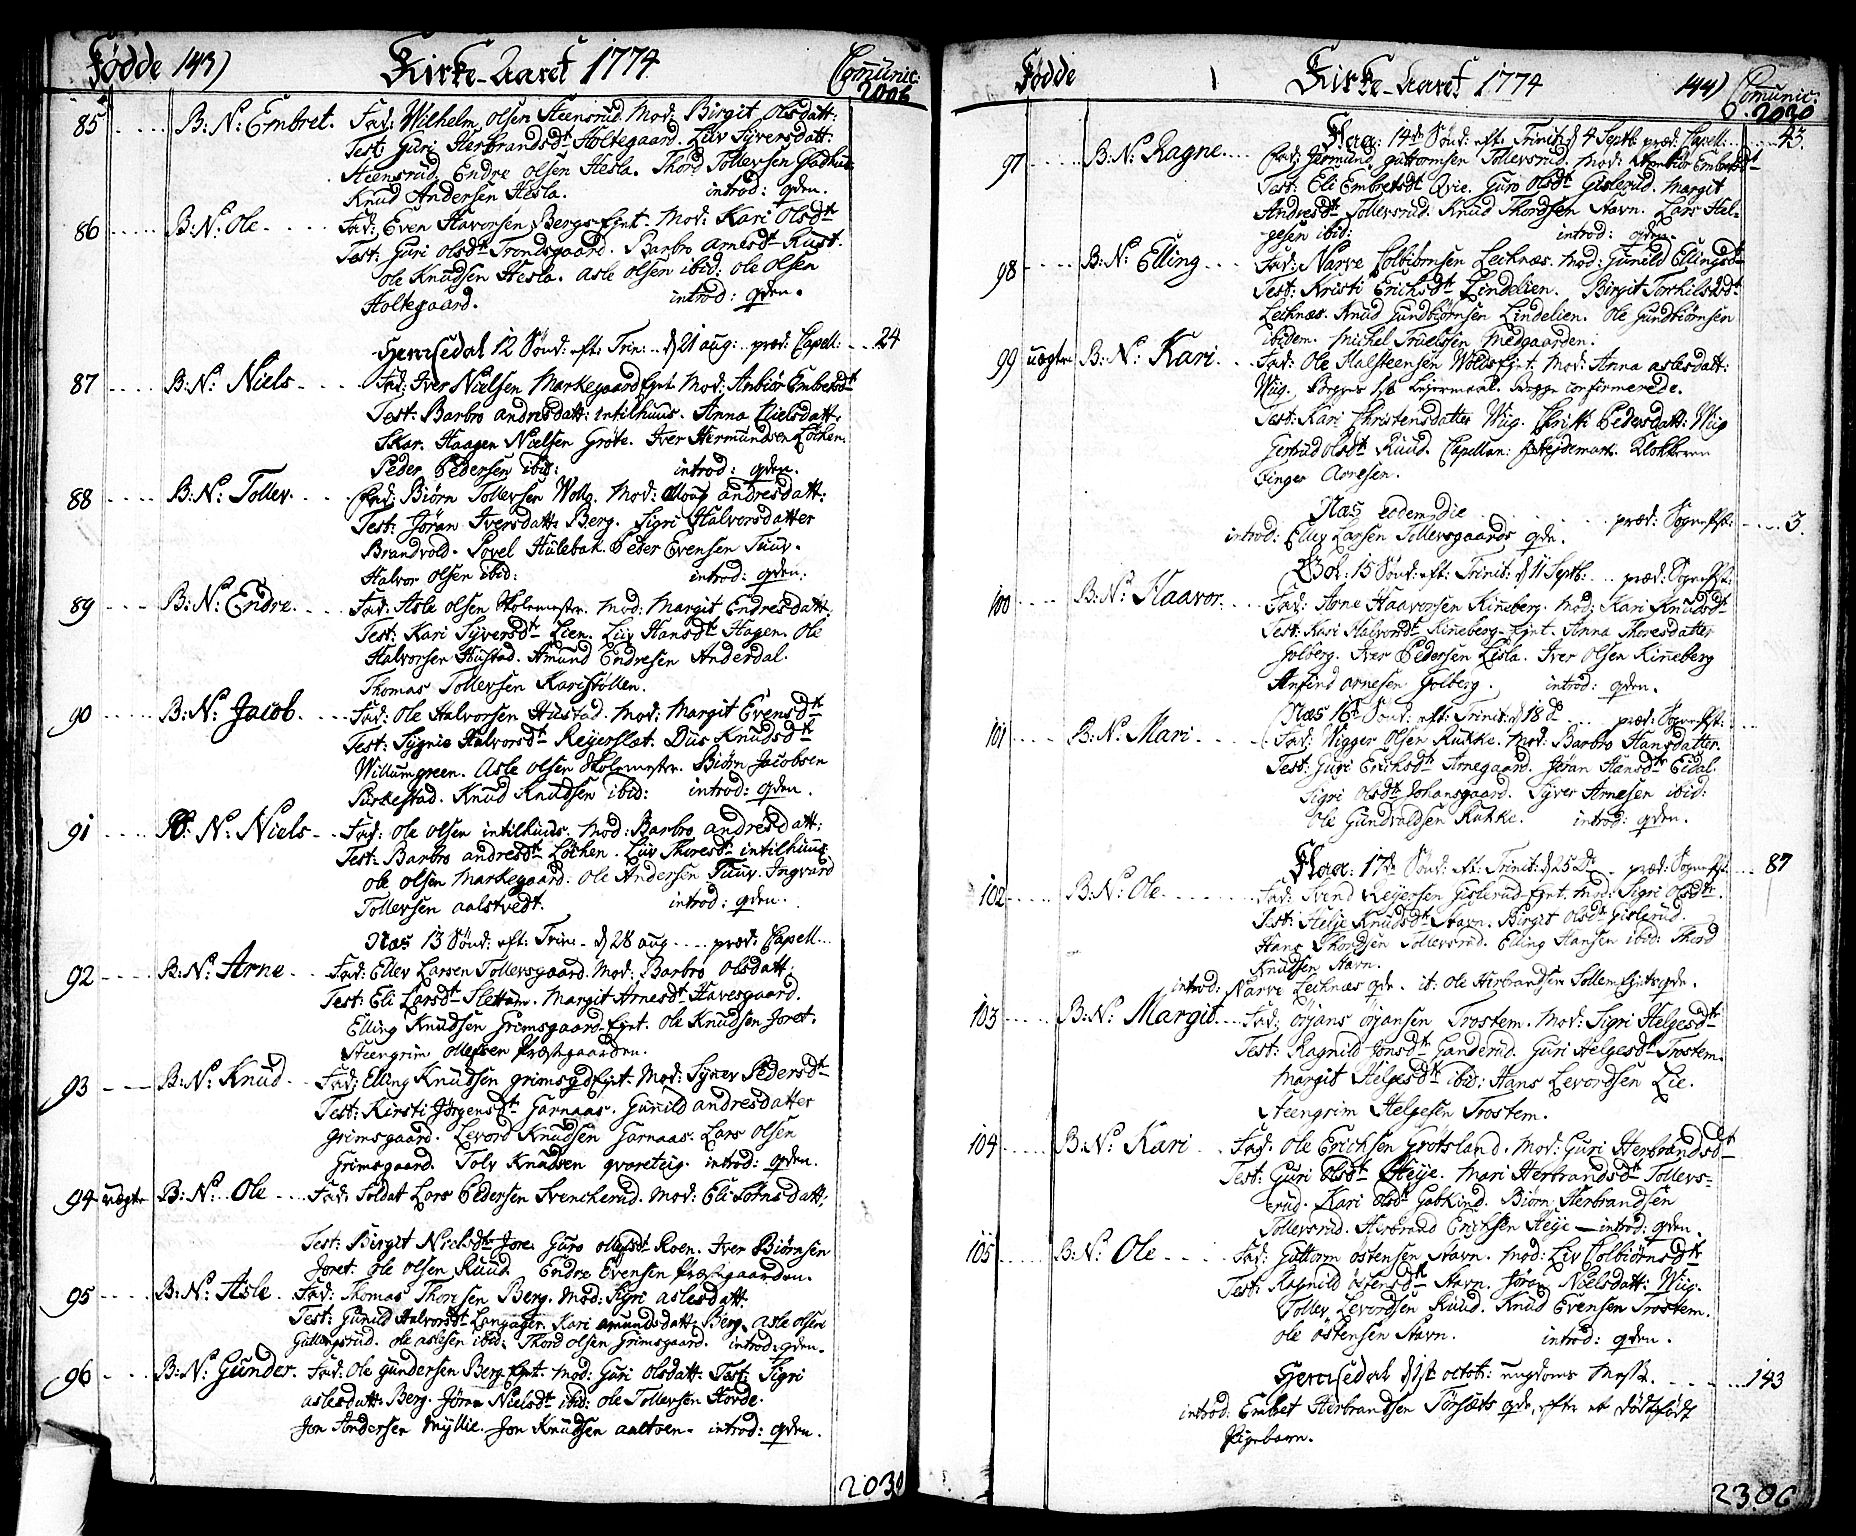 Fødde 143) Kirke-Aaret 1774 Comunic:
2006
85 B: N: Embret. Fad: Wilhelm olsen Steensrud. Mod: Birgit Olsdatt:
Test: Guri Herbrandsdt Holtegaard. Liv Syversdatt:
Steensrud. Endre olsen Hesla. Thord Tollevsen
Knud Andersen Hesla. introd: qvden.
86 B: N: Ole Fad: Even Havorsen Bergs-Eynt. Mod: Kari Olsdt
Test: Guri Olsdt Trondsgaard. Barbro arnesdt Rust.
ole Knudsen Hesla. asle olsen ibid: ole olsen
Holtegaard. introd: qvden.
Hemsedal 12 Sønd: eft: Trin: d 21 aug: præd: Capell: 24
87 B: N: Niels Fad: Iver Nielsen Markegaard Eynt. Mod: Anbiør Embretsdt
Test: Barbro andresdatt: intilhuus. Anna Nielsdatt:
Skar. Haagen Nielsen Grøte. Iver Hermundsen Løkken.
Peder Pedersen ibid: introd: qvden.
88 B: N: Tollev. Fad: Biørn Tollevsen Wolle. Mod: andresdatt:
Test: Jøran Iversdatt: Berg. Sigri Halvorsdatter
Brandvold. Povel Hulebak. Peder Evensen Tuuv.
Halvor olsen ibid: introd: qvden.
89 B: N: Endre. Fad: Asle olsen Skolemester. Mod: Margit Endresdatt:
Test: Kari Syversdt Lien. Liv Hansdt Hagen. Ole
Halvorsen Hustad. Amund Endresen Anderdal.
Thomas Tollevsen Karistøllen.
90 B: N: Jacob. Fad: Ole Halvorsen Hustad. Mod: Margit Evensdt
Test: Sygnie Halvorsdt Reyerslet. Dus Knudsdt
Willumgreen. Asle olsen Skolemester. Biørn Jacobsen
Purkestad. Knud Knudsen ibid: introd: qvden.
91 B: N: Niels Fad: ole olsen intilhuus. Mod: Barbro andresdatt:
Test: Barbro andresdt Løkken. Liv Thoresdt intilhuus
ole olsen Markegaard. ole Andersen Tuuv. Ingvard
Tollevsen aalstvedt. introd: qvden.
Næs 13 Sønd: eft: Trin: d 28 aug præd: Capell:
92 B: N: Arne Fad: Ellev Larsen Tollevsgaard. Mod: Barbro Olsdatt:
Test: Eli Larsdt Sletten. Margit Arnesdt Haversgaard.
Elling Knudsen Grimsgaard-Eynt. ole Knudsen Joret.
Steengrim ollefsen Præstgaarden.
93 B: N: Knud Fad: Elling Knudsen grimsgd Eynt. Mod: Synev Pedersdt
Test: Kirsti Jørgensdt Garnaas. Gunild andresdatter
grimsgaard. Levord Knudsen Garnaas. Lars olsen
Grimsgaard. Tolv Knudsen introd: qvden.
94 uægte B: N: Ole Fad: Soldat Lars Pedersen Svenkerud. Mod: Eli
Test: Birgit Nielsdt Jore. Guro olefsdt Roen. Iver Biørnsen
Joret. ole olsen Ruud. Endre Evensen Præstgaarden.
95 B: N: Asle Fad: Thomas Thoresen Berg. Mod: Sigri aslesdatt:
Test: Gunild Halvorsdt Langager. Kari amundsdatt: Berg. asle olsen
Guttengsrud. ole aslesen ibid: Thord olsen Grimsgaard. introd: qvden.
96 B: N: Gunder. Fad: Ole Gundersen Berg Eynt. Mod: Guri olsdatt: Test: Sigri
aslesdatt: Berg. Jøran Nielsdt ibid: ole Tollevsen Horde.
Jon Andersen Myllie. Jon Knudsen aaltven. introd: qvden.
203
Fødde Kirke-Aaret 1774 144) Comunic:
2030
Flaa: 14de Sønd: eft: Trinit: d 4 Septb præd: Capell: 43
97 B: N: Ragne. Fad: Germund guttormsen Tollevsrud. Mod: Anbiør Embretsdt
Test: Eli Embretsdt Qvie. Guro Olsdt Gislerud. Margit
Andresdt Tollevsrud. Knud Thordsen Stavn. Lars Hel-
gesen ibid: introd: qvden.
98 B: N: Elling Fad: Narve Colbiørnsen Leiknæs. Mod: Gunild Ellingsdt
Test: Kristi Erichsdt Lindelien. Birgit Torkilsdt
Leiknæs. Knud Gundbiørnsen Lindelien. ole Gundbiørnsen
ibidem. Michel Truelsen Medgaarden.
99 uægte B: N: Kari Fad: Ole Halsteensen Wolds Eynt. Mod: Anna aslesdatt:
Wiig. Begges 1ste Leyermaal. Begge confirmerede.
Test: Kari Christensdatter Wiig. Christi Pedersdatt: Wiig
Gertrud olsdt Ruud. Capellan: Heydemark. Klokkeren
Arnesen.
Næs eodem die præd: Sognepst: 3.
introd: Ellev Larsen Tollevsgaards qvde.
Gol: 15 Sønd: eft: Trinit: d 11 Septb: præd: Sognepst:
100 B: N: Haavor. Fad: Arne Haavorsen Kinneberg. Mod: Kari Knudsdt
Test: Kari Halvorsdt Kinneberg-Eynt. Anna Thoresdatter
Golberg. Iver Pedersen Lisla. Iver Olsen Kinneberg
Anfind arnesen Golberg. introd: qvden.
Næs 16de Sønd: eft: Trinit: d 18 D: præd: Sognepst:
101 B: N: Mari Fad: Wigger olsen Rukke. Mod: Barbro Hansdatter
Test: Guri Eriksdt Arnegaard. Jøran Hansdt Eidal.
Sigri olsdt Johansgaard. Syver Arnesen ibid:
ole Gundvaldsen Rukke. introd: qvden.
Flaa: 17de Sønd: eft: Trinit: d 25 D: præd: Sognepst: 87
102 B: N: Ole Fad: Svend Reyersen Gislerud Eynt. Mod: Sigri Olsdt
Test: Helje Knudsdt Stavn. Birgit olsdt Gislerud.
Hans Thordsen Tollevsrud. Elling Hansen ibid: Thord
Knudsen Stavn.
introd: Narve Leiknæs qvde. it: Ole Herbrandsen qvde.
103 B: N: Margit Fad: ørjans ørjansen Trostem. Mod: Sigri Helgesdt
Test: Ragnild Jonsdt Ganderud. Guri Helgesdt Trostem.
Margit Helgesdt ibid: Hans Levordsen Lie.
Steengrim Helgesen Trostem.
104 B: N: Kari Fad: Ole Erichsen Grøtsland. Mod: Guri Herbrandsdt
Test: Guri olsdt Heije. Mari Herbrandsdt Tollevs-
rud. Kari olsdt Gabkind. Biørn Herbrandsen
Tollevsrud. Herbrand Erichsen Heije introd: qvden.
105 B: N: Ole Fad: Guttorm østensen Stavn. Mod: Liv Colbiørnsdt
Test: Ragnild østensdt Stavn. Jøran Nielsdatt: Wiig.
Tollev Levordsen Ruud. Knud Evensen Trostem.
ole østensen Stavn. introd: qvden.
Hemsedal d 1st octob: ungdoms Messe 143
introd: Embret Herbrandsen qvde, efter et dødfødt
Pigebarn.
2306